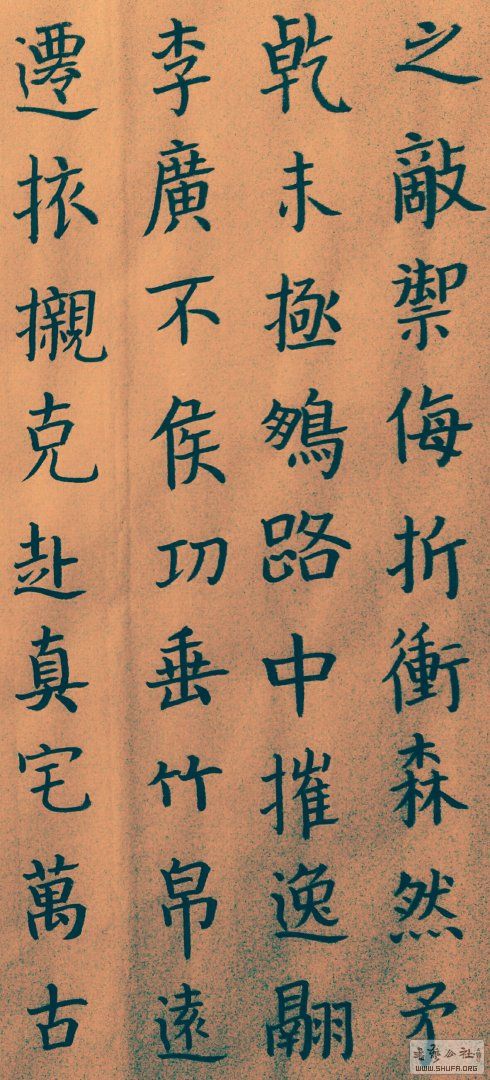 之敵禦侮折衝森然矛
乾未極鵷路中摧逸翮
李廣不侯功垂竹帛遠
遷櫬克赴真宅萬古
WWW.SHUFA.ORG